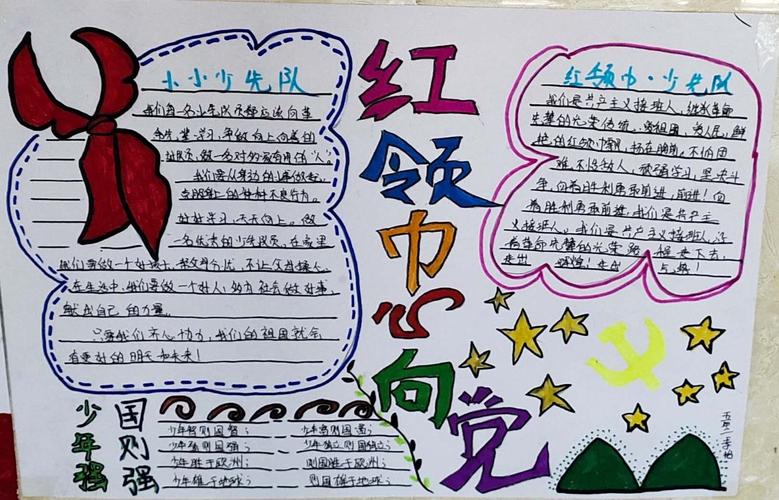 小小少先队
我们每一名少先队员都应该向革
命先辈学习,争做向上向善的
队员,做一名对社会有用的"人"。
我们要从身边的小事做起,
好好学习,天天向上。做
一名优秀的少先队员,在家里
我们要做一个好孩子,帮父母分忧,不让父母操心。
在生活中,我们要做一个好人,努力为社会做好事,
献出自己的力量。
只要我们齐心协力,我们的祖国就会
有更好的明天和未来!
红领巾心向党
红领巾·少先队
我们是共产主义接班人,继承革命
先辈的光荣传统,爱祖国,爱人民,鲜
艳的红领巾飘扬在胸前,不怕困
难,不怕敌人,顽强学习,坚决斗
争,向着胜利勇敢前进,前进!向
着胜利勇敢前进,我们是共产主
义接班人。我们是共产主义接班人,沿
着革命先辈的光荣路程走下去,
少年强
国则强
少年智则国智;
少年富则国富;
少年强则国强;
少年独立则国独立;
少年胜于欧洲;
则国胜于欧洲;
少年雄于地球;
则国雄于地球;